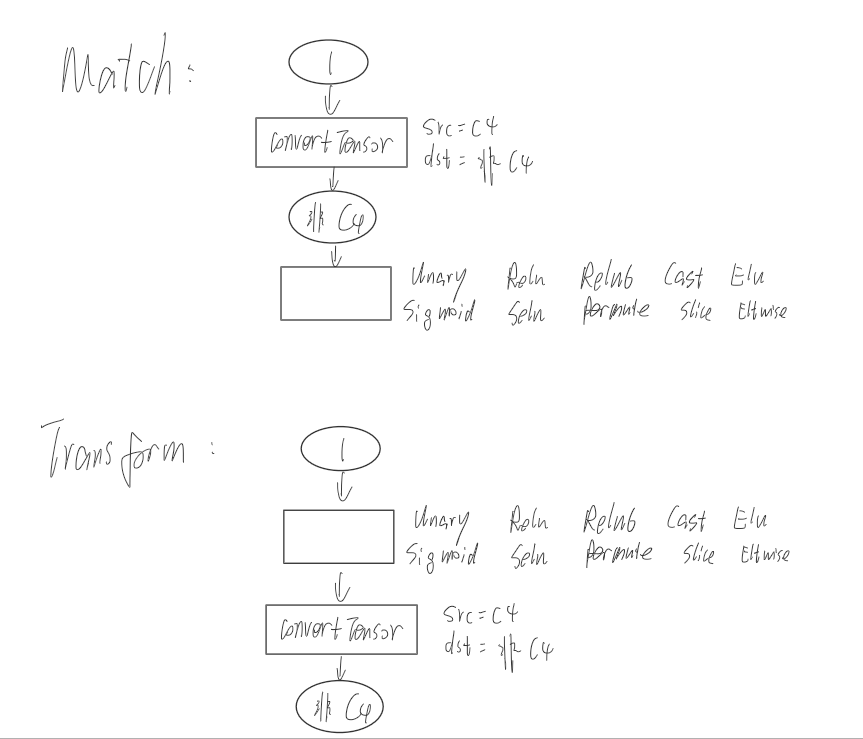 Match:
1
ConvertTensor
src=C4
dst=非C4
非C4
Unary Relu Relu6 Cast Elu
Sigmoid Selu Permute Slice Eltwise
Transform:
1
Unary Relu Relu6 Cast Elu
Sigmoid Selu Permute Slice Eltwise
ConvertTensor
src=C4
dst=非C4
非C4